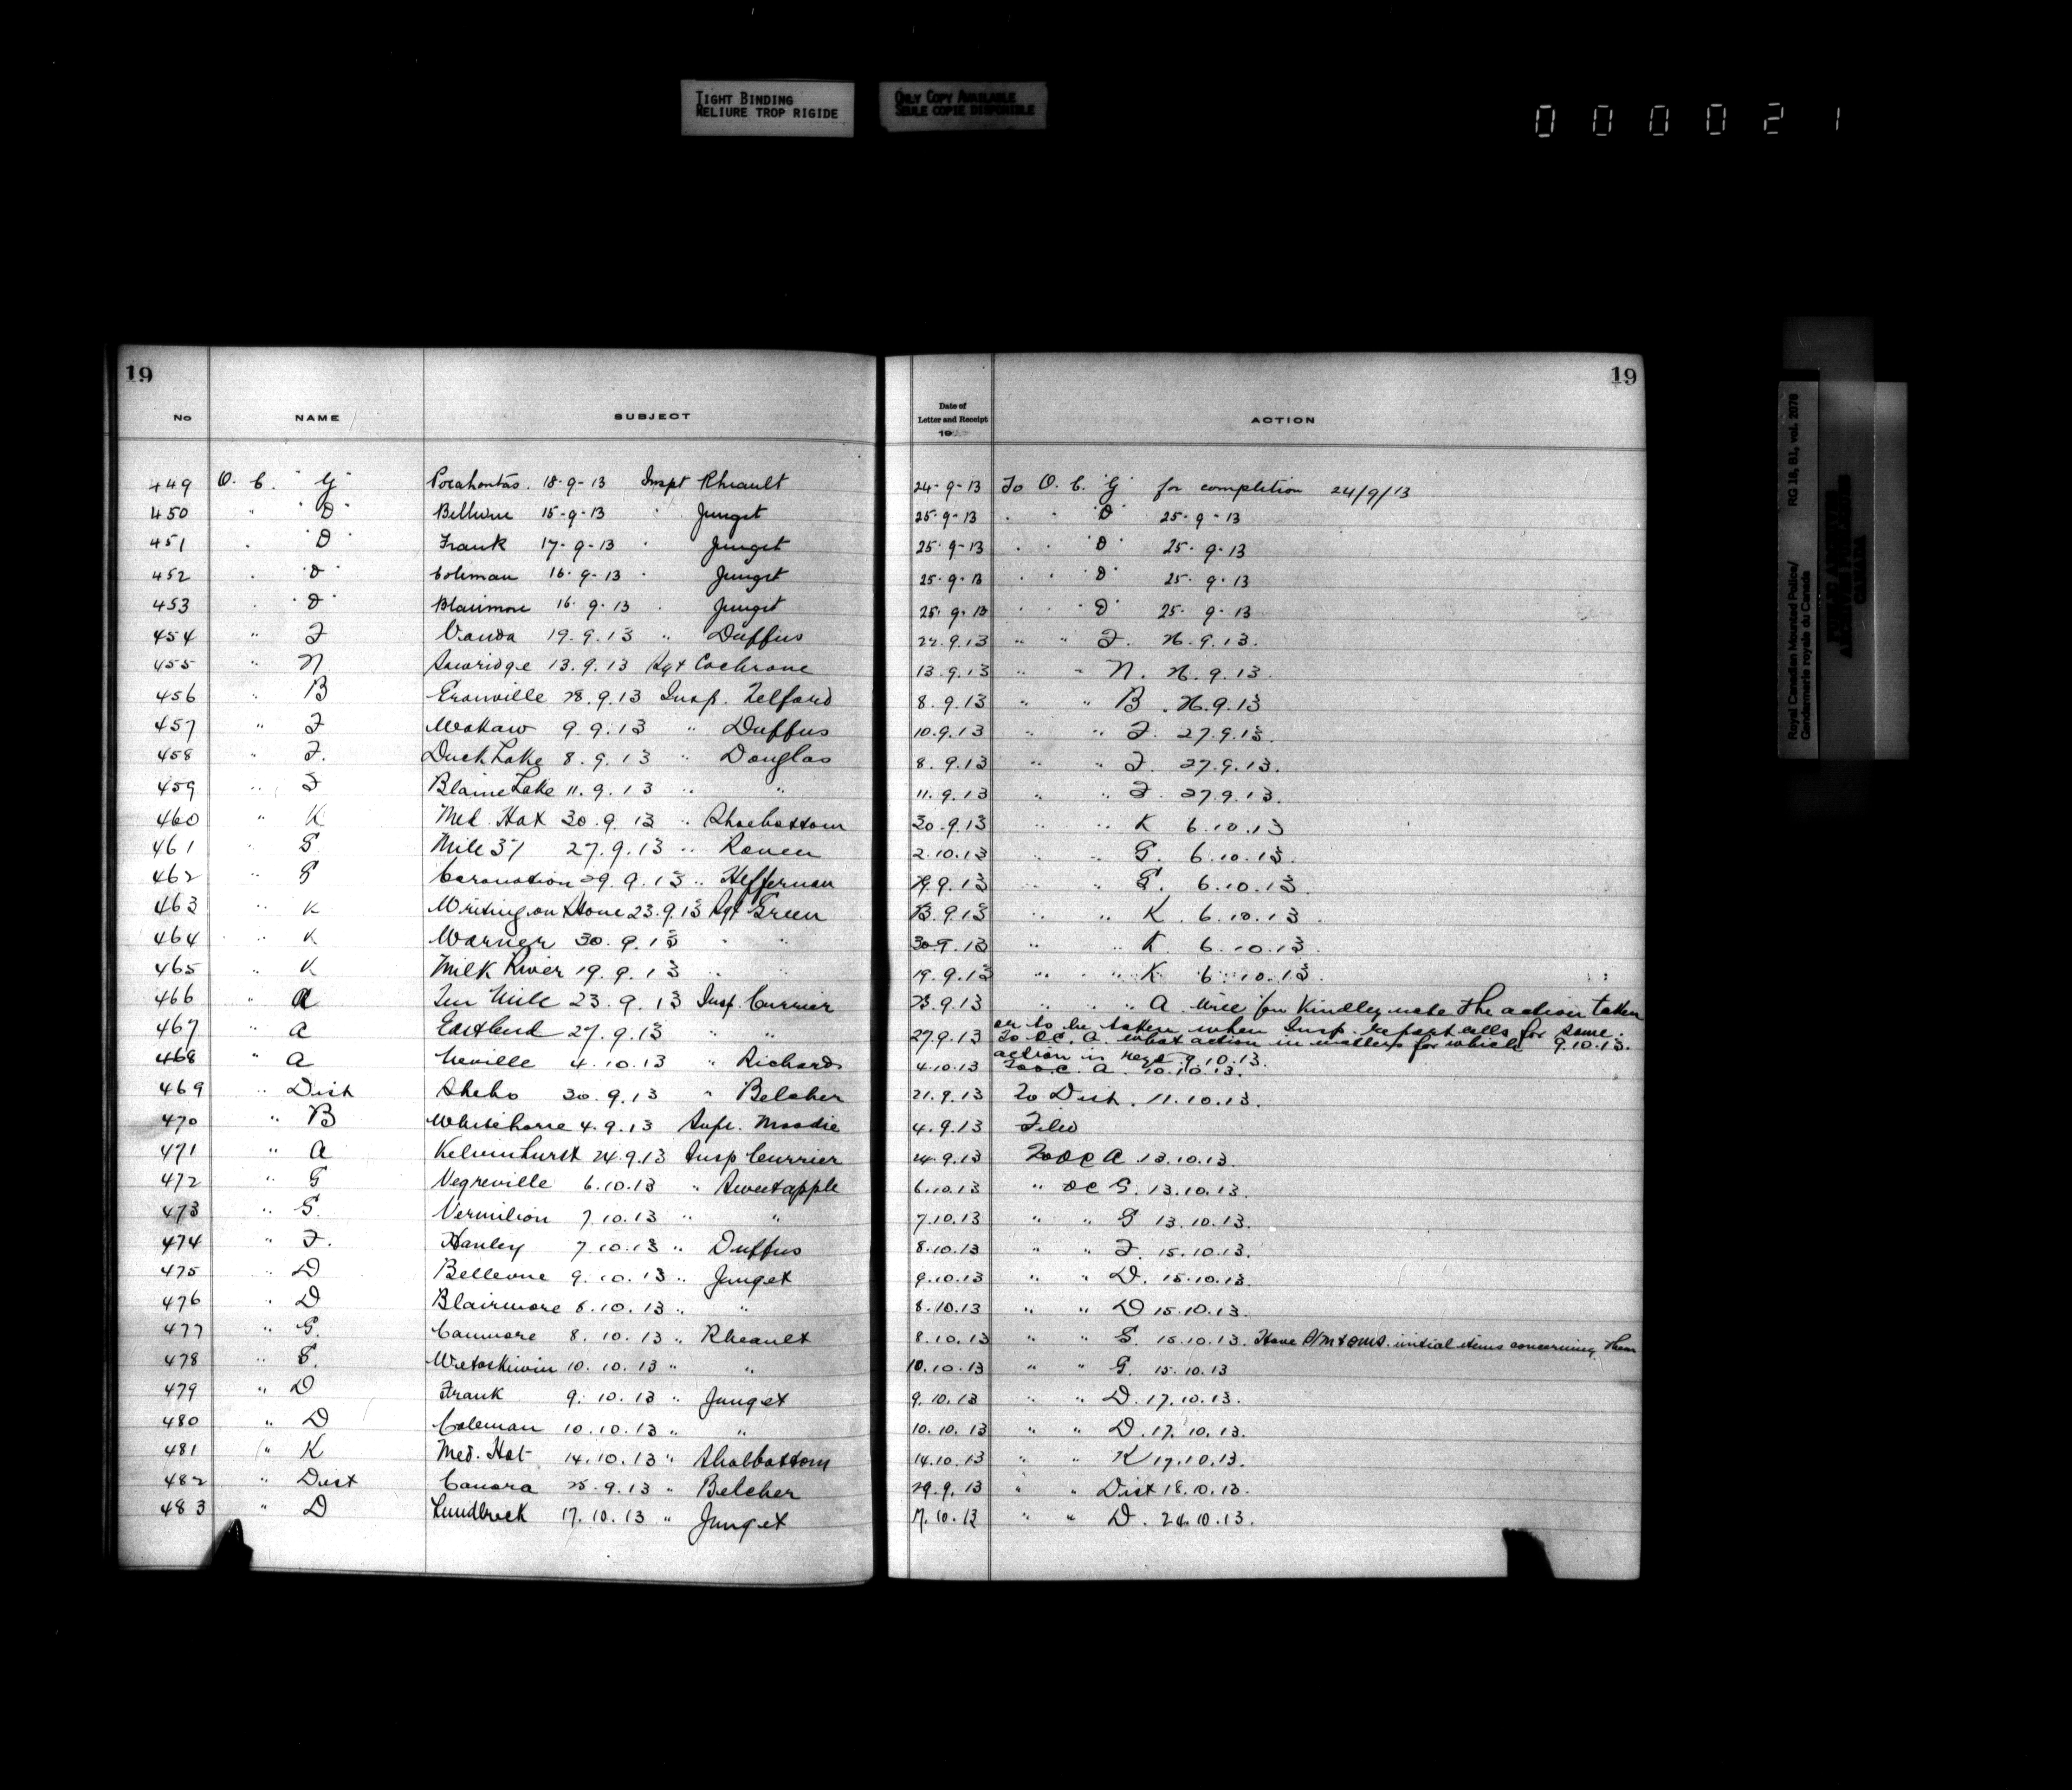 TIGHT BINDING
RELIURE TROP RIGIDE
ONLY COPY AVAILABLE
SEULE COPIE DISPONIBLE
000021
Royal Canadian Mounted Police/ RG 18, B1, vol. 2078
Gendarmerie royale du Canada
19 19
No NAME SUBJECT Date of Letter and Receipt 19 ACTION
449 O. C. "G" Pocahontas. 18-9-13 Inspt Rheault 24-9-13 To O. C. "G" for completion 24/9/13
450 " "D" Bellevue 15-9-13 " Junget 25-9-13 " " "D" 25-9-13
451 " "D" Frank 17-9-13 " Junget 25-9-13 " " "D" 25-9-13
452 " "D" Coleman 16-9-13 " Junget 25-9-13 " " "D" 25-9-13
453 " "D" Blairmore 16-9-13 " Junget 25-9-13 " " "D" 25-9-13
454 " F Vonda 19.9.13 " Duffus 22.9.13 " " F. 26.9.13.
455 " N Sawridge 13.9.13 Sgt Cochrane 13.9.13 " " N. 26.9.13.
456 " B 28.9.13 Insp. Telford 8.9.13 " " B. 26.9.13
457 " F Wakaw 9.9.13 " Duffus 10.9.13 " " F. 27.9.13.
458 " F. Duck Lake 8.9.13 " Douglas 8.9.13 " " F. 27.9.13.
459 " F Blaine Lake 11.9.13 " " 11.9.13 " " F. 27.9.13.
460 " K Med. Hat 30.9.13 " Shoebottom 30.9.13 " " K 6.10.13
461 " G Mile 51 27.9.13 " Raven 2.10.13 " " G. 6.10.13.
462 " G Coronation 29.9.13 " Heffernan 29.9.13 " " G. 6.10.13.
463 " K Writing on Stone 23.9.13 Sgt Green 23.9.13 " " K. 6.10.13.
464 " K Warner 30.9.13 " " 30.9.13 " " K. 6.10.13.
465 " K Milk River 19.9.13 " " 19.9.13 " " K 6.10.13.
466 " A Ten Mile 23.9.13 Insp. Currier 23.9.13 " " " A Will you Kindley note the action taken
or to be taken when Insp. report calls for same. 9.10.13.
467 " A Eastend 27.9.13 " " 27.9.13 To OC. A. what action in matters for which
action is reqd 9.10.13.
468 " A Neville 4.10.13 " Richards 4.10.13 To O.C. A. 10.10.13.
469 " Dist Sheho 30.9.13 " Belcher 21.9.13 To Dist. 11.10.13.
470 " B Whitehorse 4.9.13 Supt. Moodie 4.9.13 Filed
471 " A Kelvinhurst 24.9.13 Insp Currier 24.9.13 To OC A 13.10.13.
472 " G Vegreville 6.10.13 " Sweetapple 6.10.13 " OC G. 13.10.13.
473 " G. Vermilion 7.10.13 " " 7.10.13 " " G 13.10.13.
474 " F. Hanley 7.10.13 " Duffus 8.10.13 " " F. 15.10.13.
475 " D Bellevue 9.10.13 " Junget 9.10.13 " " D. 15.10.13.
476 " D Blairmore 8.10.13 " " 8.10.13 " " D 15.10.13.
477 " G. Canmore 8.10.13 " Rheault 8.10.13 " " G. 15.10.13. Have initial items concerning them
478 " G. Wetaskiwin 10.10.13 " " 10.10.13 " " G. 15.10.13
479 " D Frank 9.10.13 " Junget 9.10.13 " " D. 17.10.13.
480 " D Coleman 10.10.13 " " 10.10.13 " " D. 17.10.13.
481 " K Med. Hat 14.10.13 " Shoebottom 14.10.13 " " K 17.10.13.
482 " Dist Canora 25.9.13 " Belcher 29.9.13 " " Dist 18.10.13.
483 " D Lundbreck 17.10.13 " Junget 17.10.13 " " D. 24.10.13.